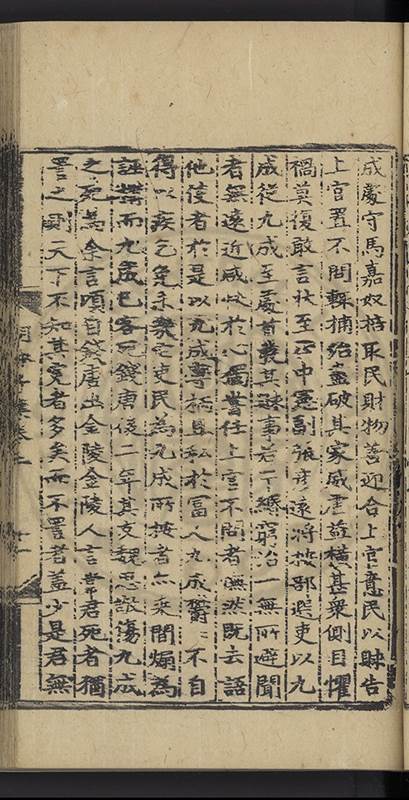 成慶守馬嘉奴掊取民財物善迎合上官意民以賕告
上官置不問輙捕殆盡破其家威聲益橫甚衆側目懼
禍莫復敢言狀至正中憲副張彦遠將按郡選吏以九
成從九成至慶首發其賕事若干緡窮治一無所避聞
者無遠近咸快於心舊嘗任上官不問者憮然既去語
他使者於是以九成專柄且私於富人九成不自
得以疾乞免未衆宅吏民為九成所按者亦乘間煽為
誣搆而九成已客死錢唐後二年其友魏思敬傷九成
之死為余言頃自錢唐出金陵金陵人言常君死者猶
詈之則天下不知其寃者多矣而不詈者蓋少是君無